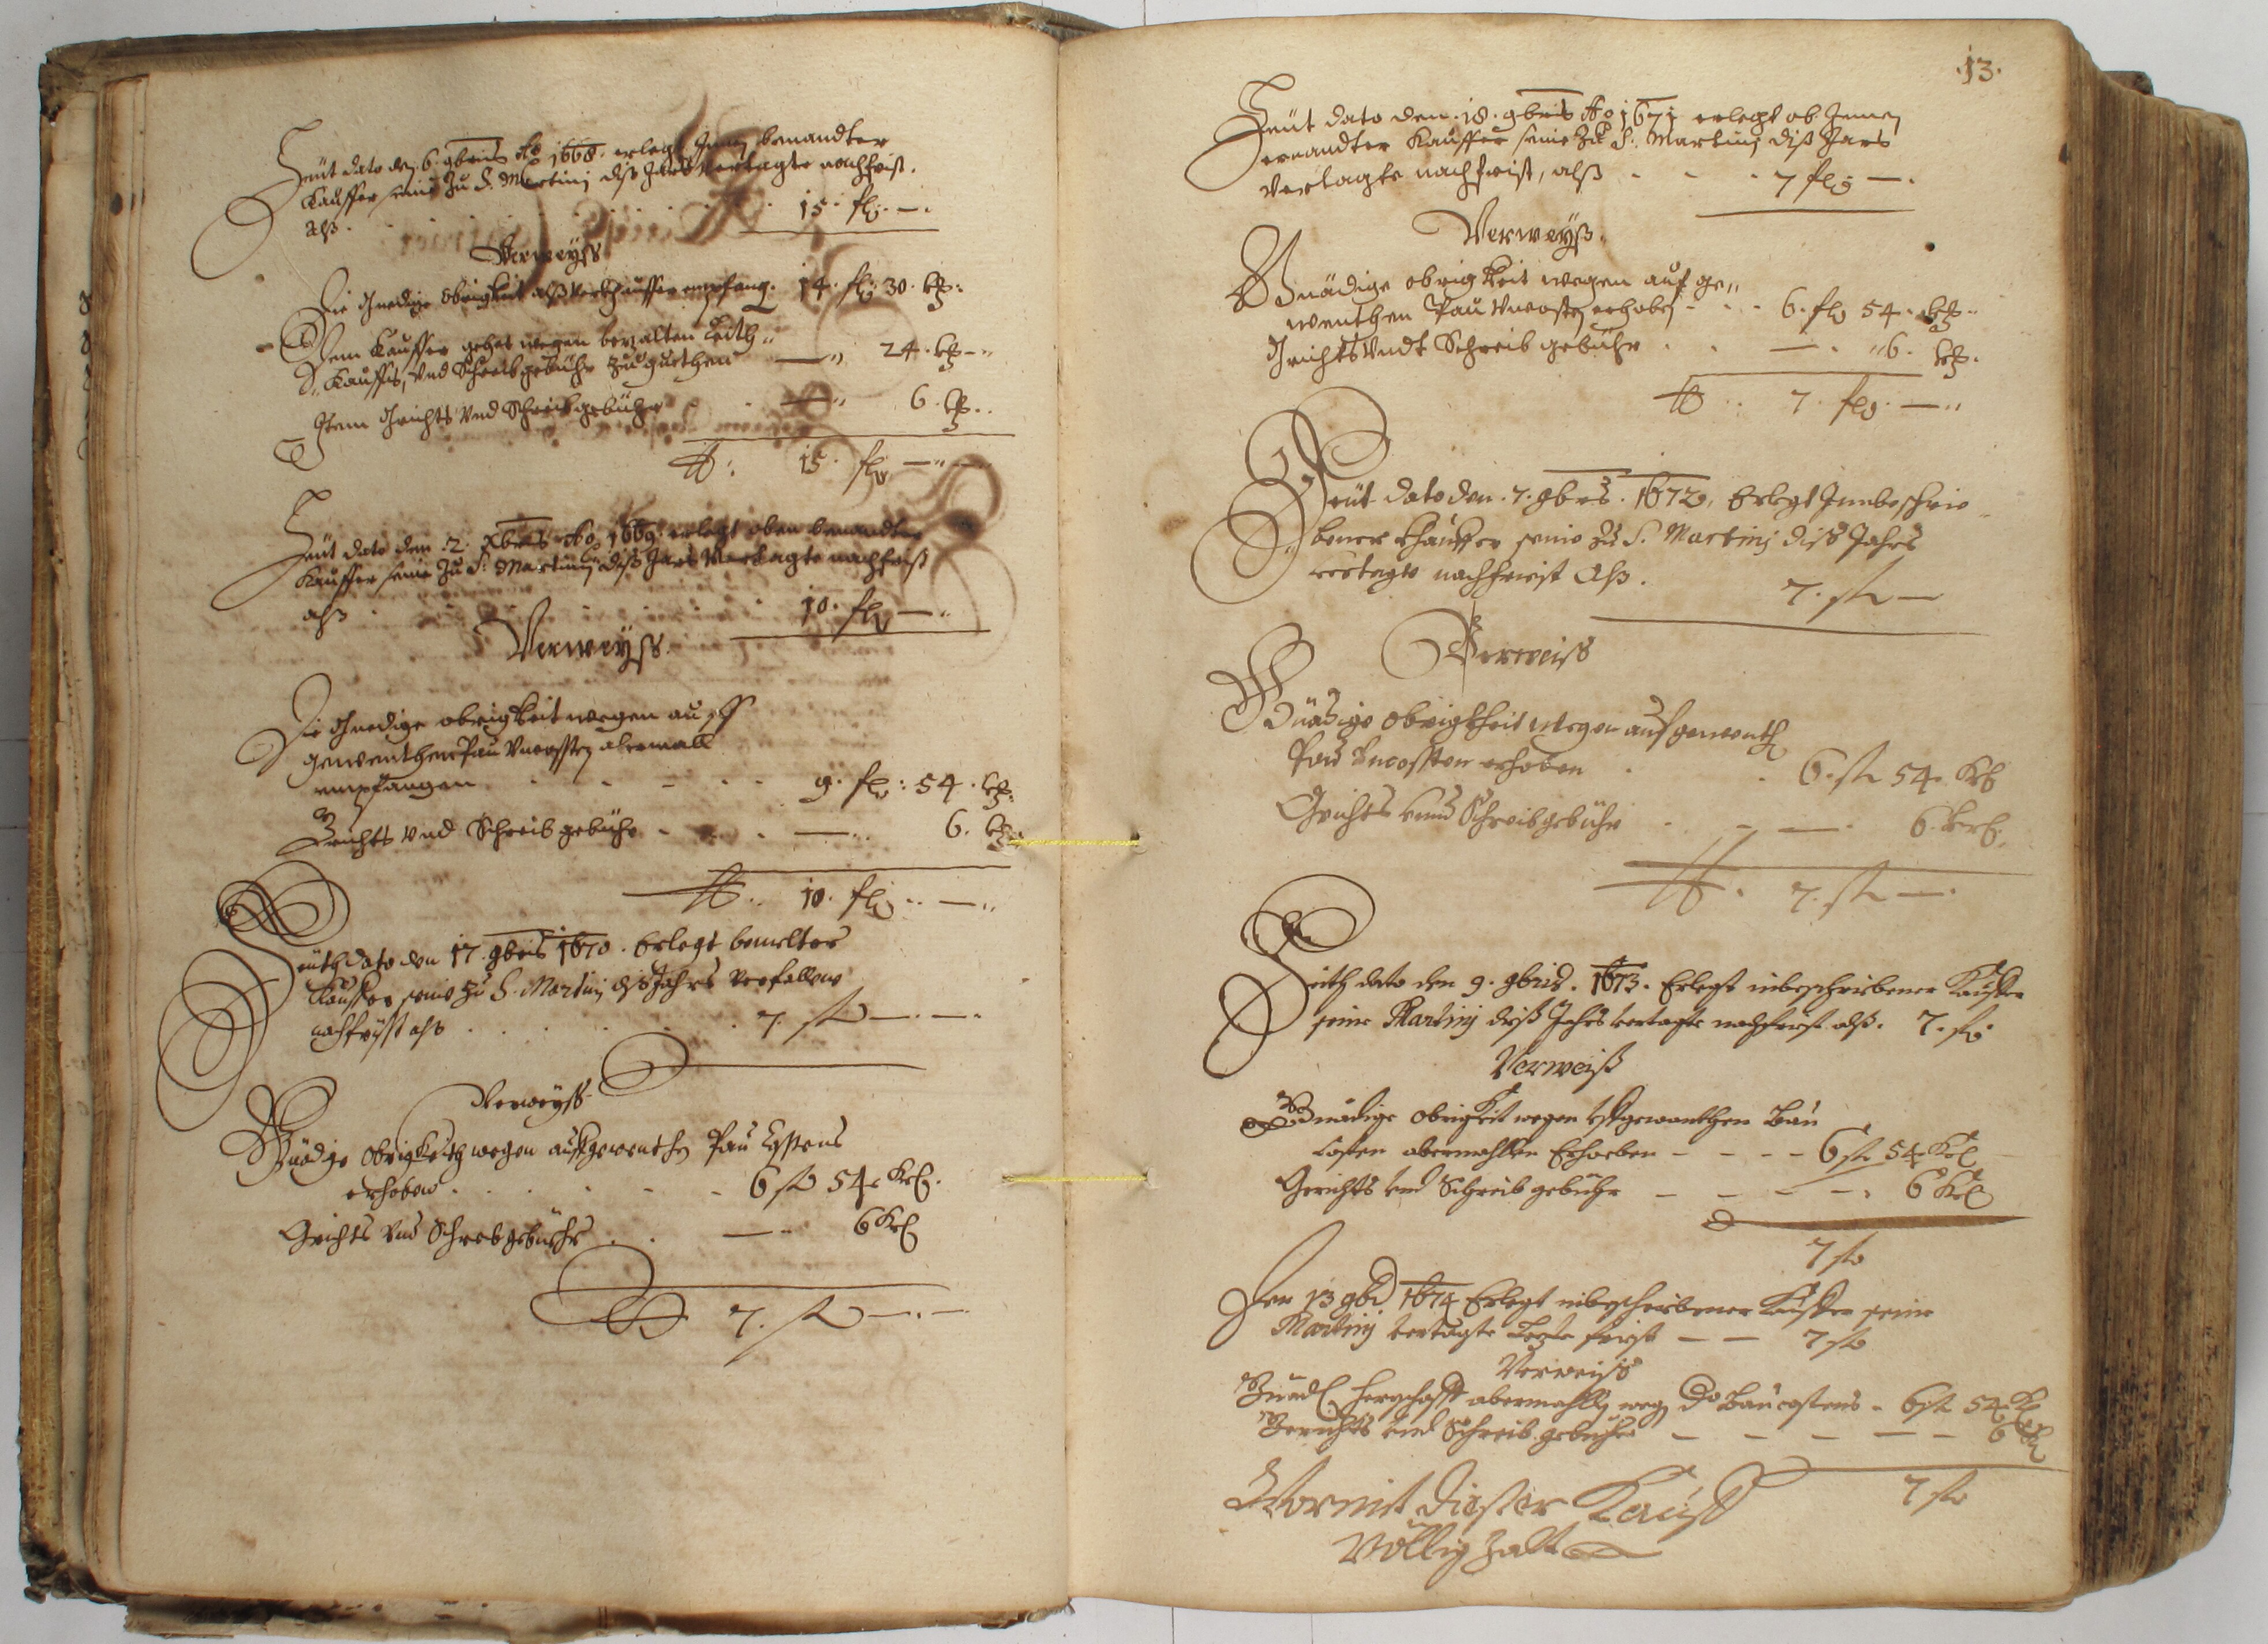 Heüt dato den 6. 9bris Ao 1668. erlegt Innen benandter
Kauffer seine zu S. Martinj diß Jars vertagte nachfrist.
Alß . 15. fl. —.
Verweyß
Die Gnedige Obrigkeit alß Verkhauffer empfang. 14. fl. 30. kr.
Dem Kauffer gehet wegen bezalten Leith„
„Kauffs, Vnd Schreibgebühr zu guethem — 24. kr.
Item Grichts Vnd Schreibgebühr — 6. kr.
15. fl. —
Heüt dato den .2. Xbris Ao 1669. erlegt oben benandter
Kauffer seine Zu S. Martinj diß Jars Vertagte nachfrist
alß . 10. fl. —
Verweyß.
Die Gnedige obrigkeit wegen auff
gewenthen Pau Vncosten abermall
empfangen . 9. fl. 54. kr.
Grichts Vnd Schreibgebühr — 6. kr.
10. fl. —
Heüth dato den 17. 9bris 1670. Erlegt bemelter
Kauffer seine zu S. Martinj diß Jahrs verfallene
nachfryst alß . 7. fl —
Verweyß
Gnädige Obrigkeith wegen auffgewenthen Pau Cystens
erhoben . 6 fl 54 kr.
Grichts Vnd Schreibgebühr . — 6 kr
7. fl —
.13.
Heüt dato den .18. 9bris Ao 1671 erlegt ob Innen
ernandter Kauffer seine Zu S. Martinj diß Jars
vertagte nachfrist, alß . 7 fl. —.
Verweyß.
Gnädige obrigkeit wegen auf ge„
wenthen Pau Vncosten erhoben . 6. fl 54. kr.
Grichts Vndt Schreibgebühr . — . 6. kr.
7. fl. —
Heüt dato den .7. 9bris . 1672. Erlegt Innbeschrie
bener Khauffer seine zu S. Martinj diß Jahrs
vertagte nachfrist Alß . 7. fl —
Verweiß
Gnädige Obrigkheit wegen aufgewenth
Pau Vncossten erhoben . 6. fl 54. kr
Grichts vnnd Schreibgebühr . — . 6. kr.
7. fl —.
Heith dato den 9. 9bris. 1673. Erlegt inbeschribener Kauffer
seine Martinj diß Jahrs vertagte nachfrist alß. 7. fl.
Verweiß
Gnädige Obrigkeit wegen auffgewanthen Bau
Costen abermahllen Erhoeben — — — 6 fl 54 kr
Gerichts vnd Schreib gebuhr — — — — 6 kr
7 fl
Den 13 9bris 1674 Erlegt inbeschribener Kauffer seine
Martinj vertagte Lezte frist — — 7 fl
Verweiß
Gnedl Herrschafft abermahllen wegen do Baucostens — 6 fl 54 kr
Gerichts vnd Schreib gebuhr — — — — — 6 kr
7 fl
Wormit diester Kauff
Völlig Zalt